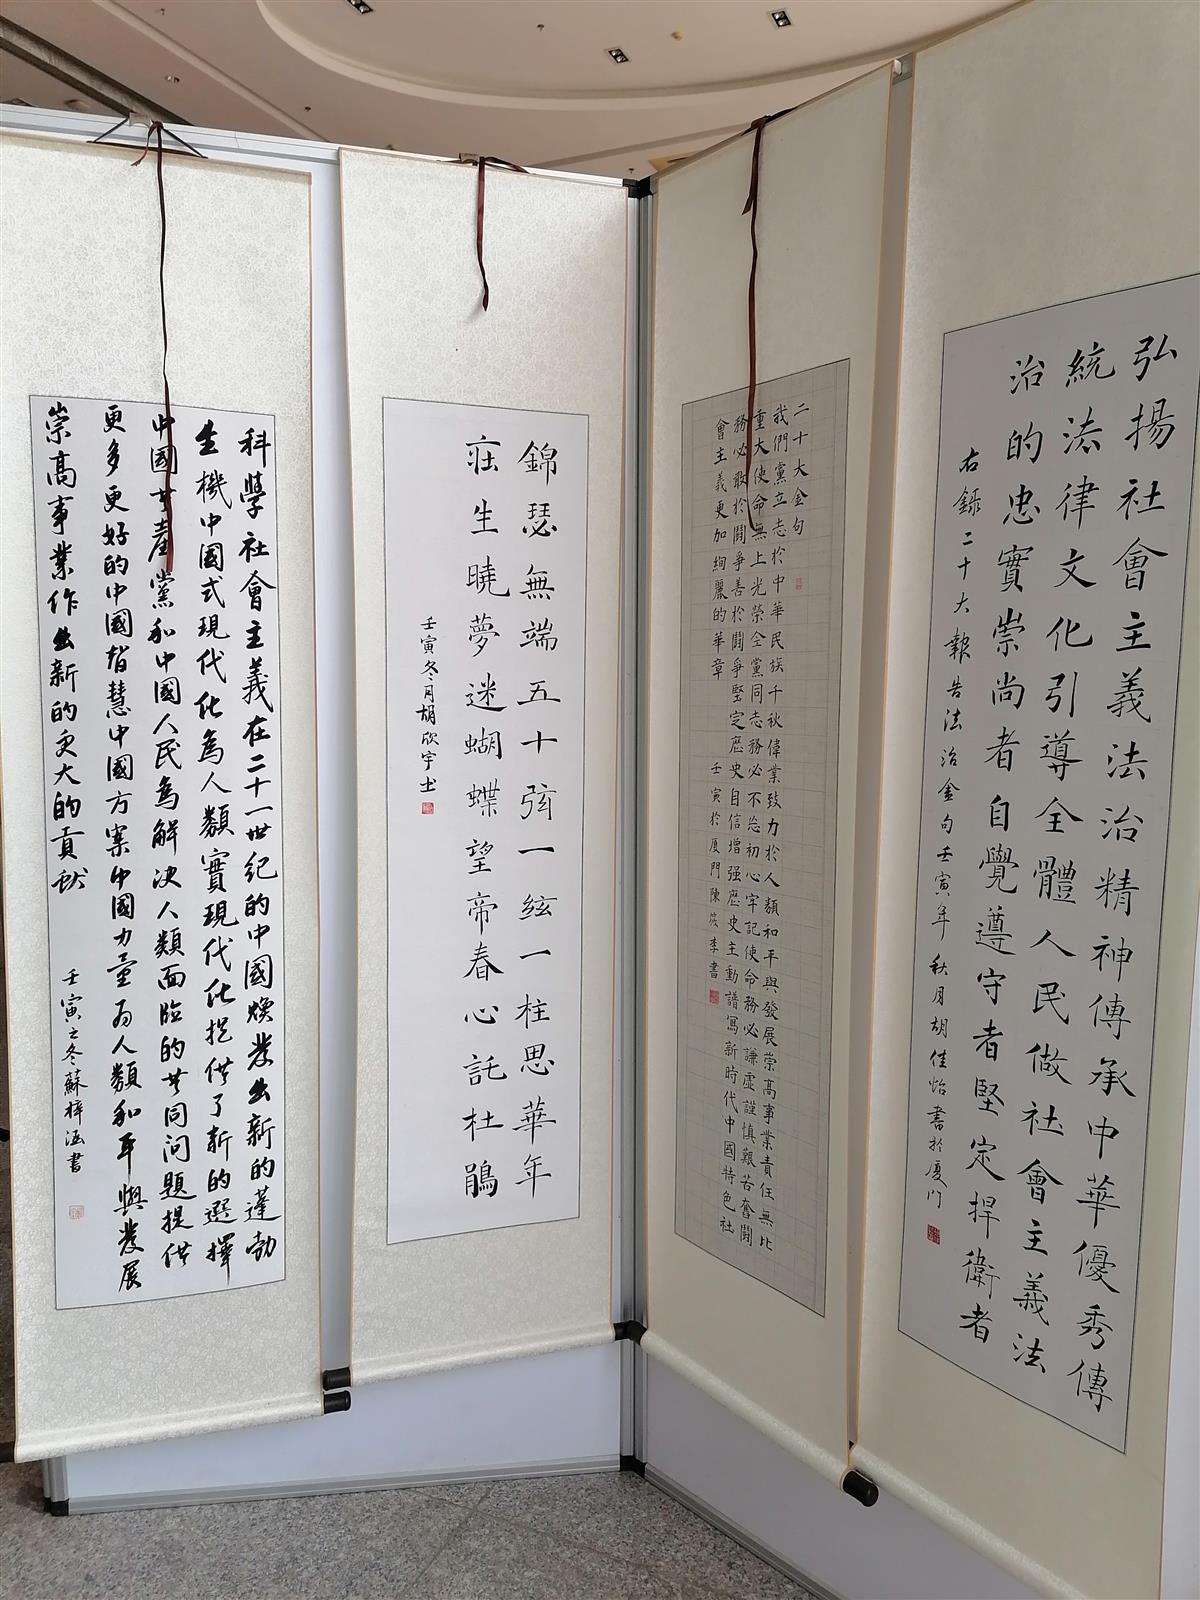 弘揚社會主義法治精神傳承中華優秀傳
統法律文化引導全體人民做社會主義法
治的忠實崇尚者自覺遵守者堅定捍衛者
右錄二十大報告法治金句壬寅年秋月胡佳怡書於厦门
二十大金句
我們黨立志於中華民族千秋偉業致力於人類和平與發展崇高事業責任無比
重大使命無上光榮全黨同志務必不忘初心牢記使命務必謙虛謹慎艱苦奮鬪
務必敢於鬪爭善於鬪爭堅定歷史自信增强歷史主動譜寫新時代中國特色社
會主義更加絢麗的華章 壬寅於厦門陳筱李書
錦瑟無端五十弦一絃一柱思華年
莊生曉夢迷蝴蝶望帝春心託杜鵑
壬寅冬月胡欣宇书
科學社會主義在二十一世紀的中國煥發出新的蓬勃
生機中國式現代化為人類實現現代化提供了新的選擇
中國共產黨和中國人民為解决人類面臨的共同问題提供
更多更好的中國智慧中國方案中國力量為人類和平與發展
崇高事業作出新的更大的貢献 壬寅之冬蘇梓涵書